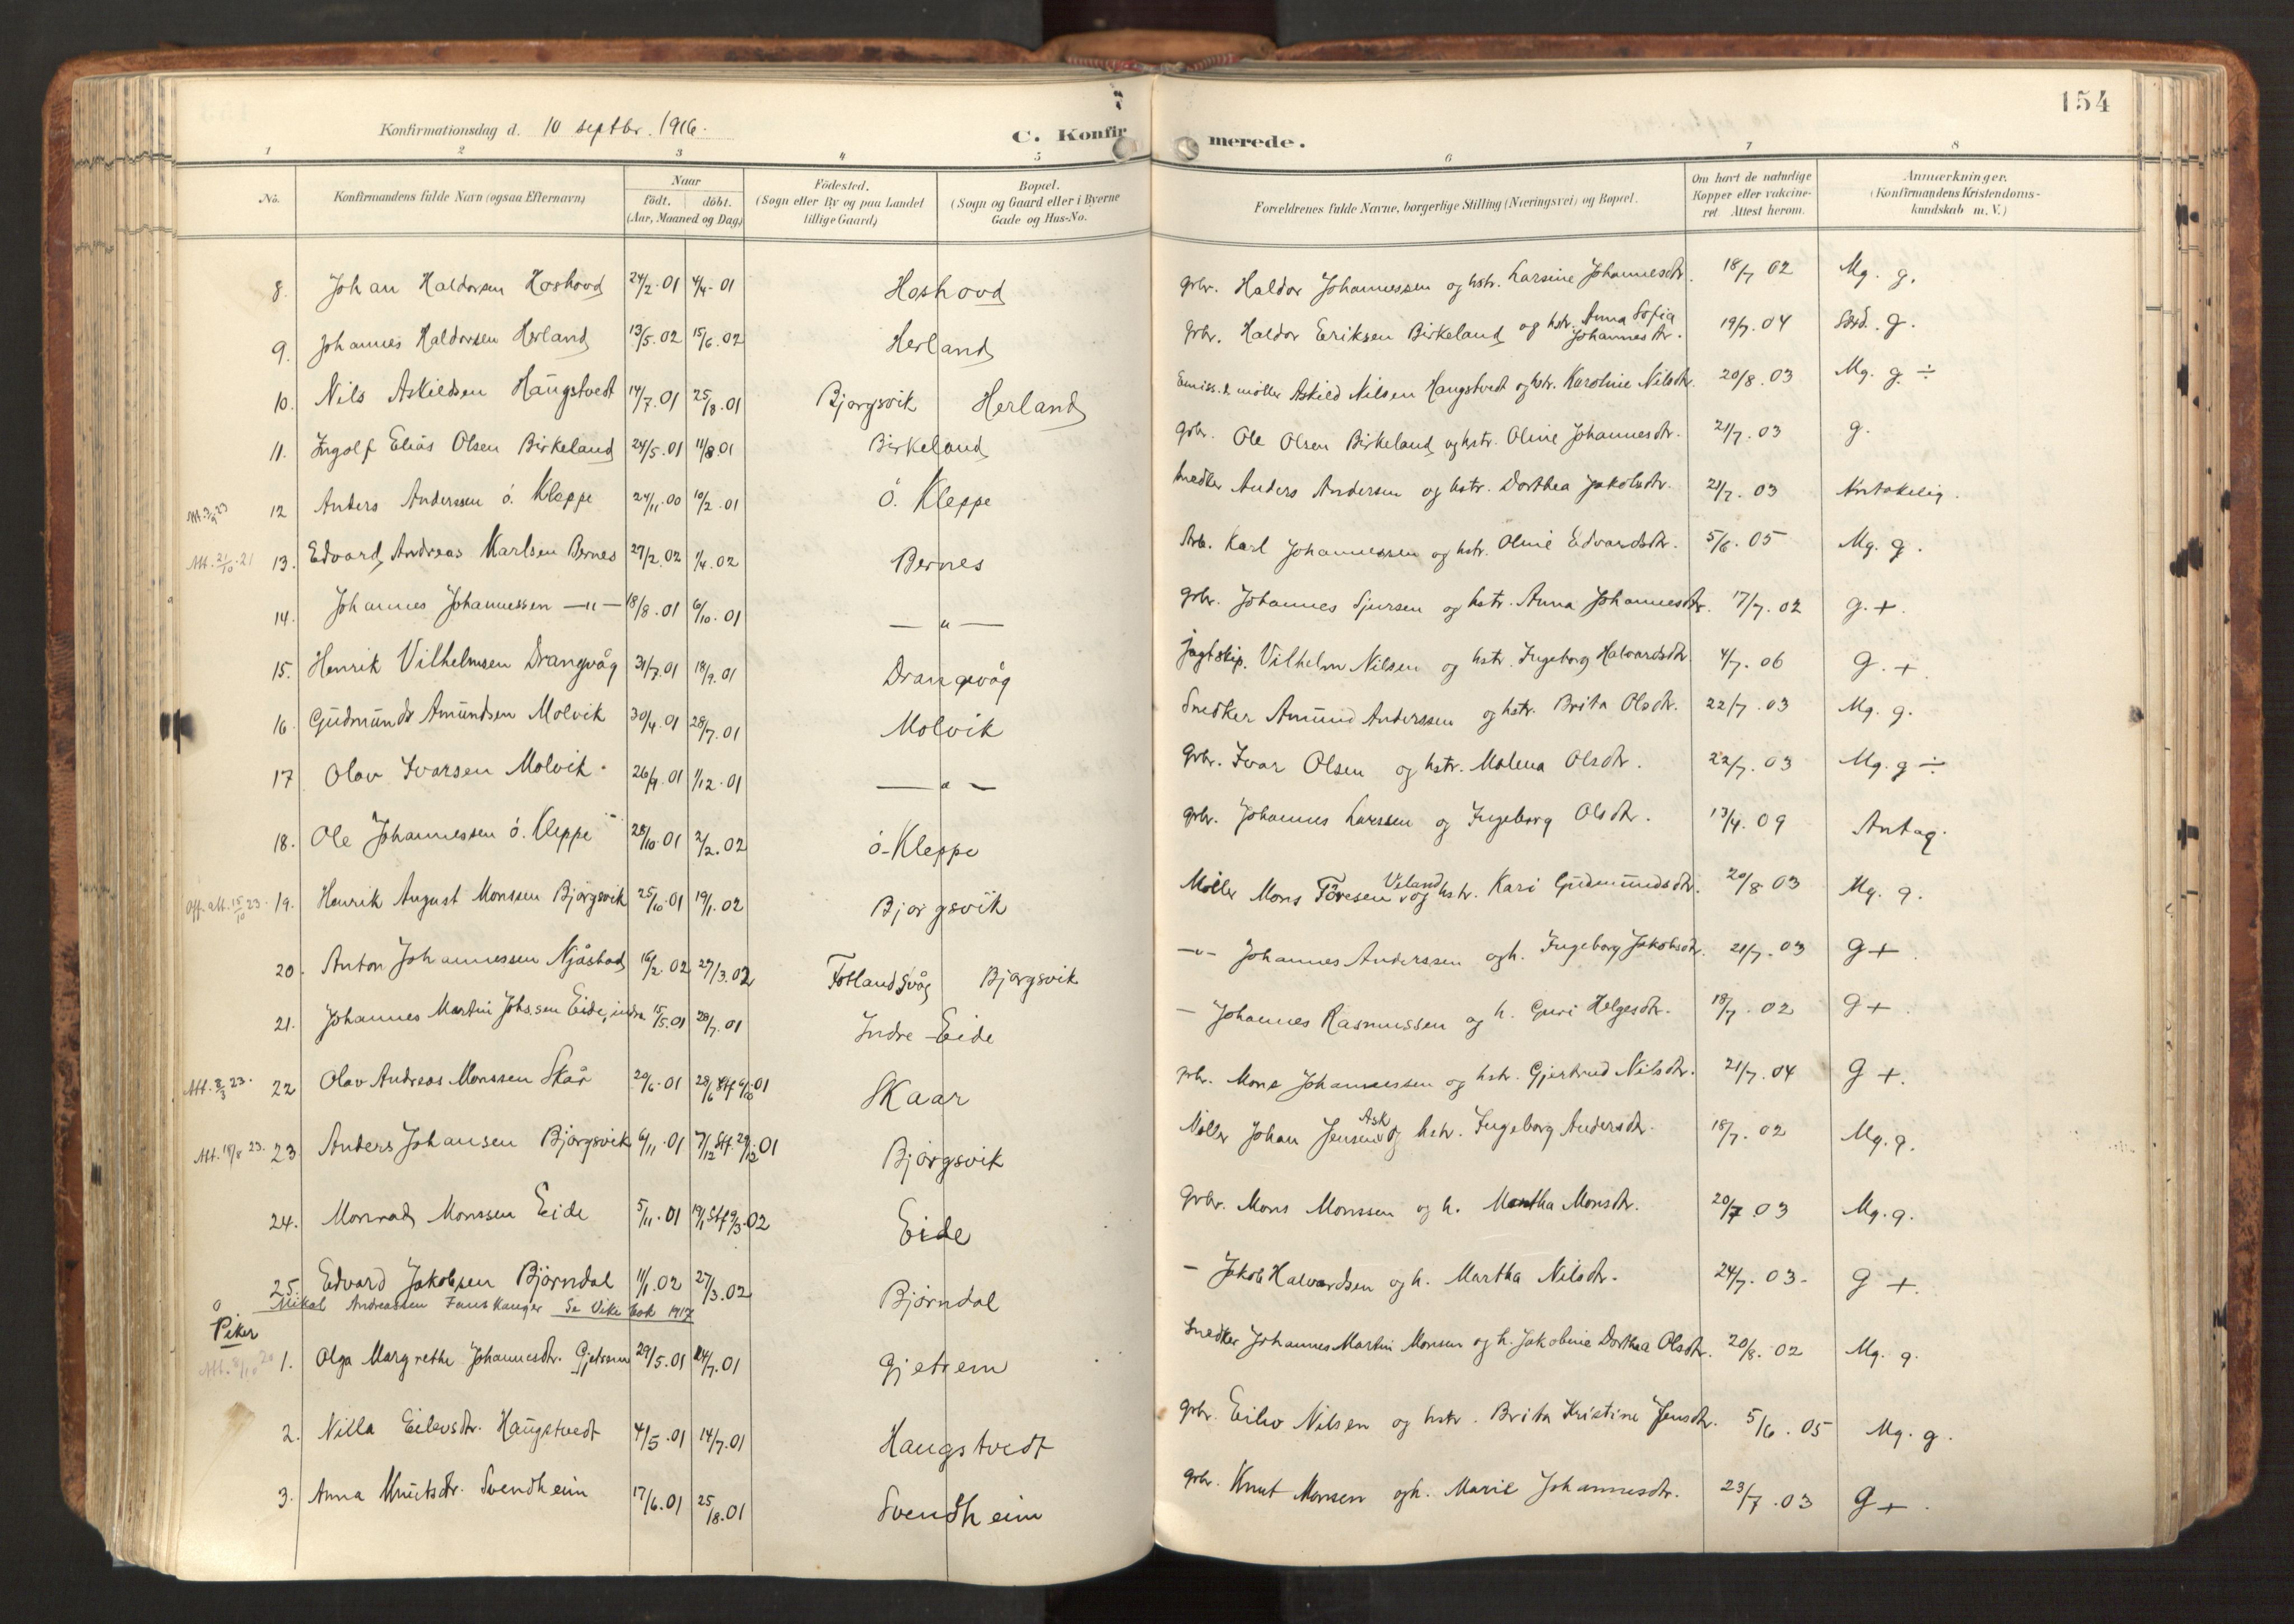 154
Konfirmationsdag d. 10 septbr. 1916.
C. Konfirmerede.
1 2 3 4 5 6 7 8
No.
Konfirmandens fulde Navn (ogsaa Efternavn)
Naar
födt. döbt.
(Aar, Maaned og Dag)
Födested.
(Sogn eller By og paa Landet
tillige Gaard)
Bopæl.
(Sogn og Gaard eller i Byerne
Gade og Hus-No.
Forældrenes fulde Navne, borgerlige Stilling (Næringsvei) og Bopæl.
Om havt de naturlige
Kopper eller vakcine-
ret. Attest herom.
Anmærkninger.
(Konfirmandens Kristendoms-
kundskab m. V.)
8. Johan Haldorsen Hoshovd 24/2.01 4/4.01 Hoshovd grbr. Haldor Johannessen og hstr. Larsine Johannesdtr. 18/7 02 Mg. g.
9. Johannes Haldorsen Herland 13/5.02 15/6.02 Herland grbr. Haldor Eriksen Birkeland og hstr. Anna Sofia Johannesdtr. 19/7.04 g.
10. Nils Askildsen Haugstvedt 14/7.01 25/8.01 Bjorgsvik Herland Emiss. & møller Askild Nilsen Haugstvedt og hstr. Karoline Nilsdtr. 20/8.03 Mg. g. ÷
11. Ingolf Elias Olsen Birkeland 24/5.01 11/8.01 Birkeland grbr. Ole Olsen Birkeland og hstr. Oline Johannesdtr. 21/7.03 g.
12 Anders Anderssen ö. Kleppe 24/11.00 10/2.01 Ö. Kleppe Snedker Anders Andersen og hstr. Dorthea Jakobsdtr. 21/7.03 Antakelig.
Att. 21/10.21 13. Edvard Andreas Karlsen Bernes 27/2.02 1/4.02 Bernes Arb. Karl Johannessen og hstr. Oline Edvardsdtr. 5/6.05 Mg. g.
14. Johannes Johannessen —"— 18/8.01 6/10.01 —"— grbr. Johannes Sjursen og hstr. Anna Johannesdtr. 17/7.02 g. +.
15. Henrik Vilhelmsen Drangevåg 31/7.01 18/9.01 Drangevåg jagtskip. Vilhelm Nilsen og hstr. Ingeborg Halvardsdtr. 4/7.06 g. +.
16. Gudmund Amundsen Molvik 30/4.01 28/7.01 Molvik Snedker Amund Anderssen og hstr. Brita Olsdtr. 22/7.03 Mg. g.
17 Olav Ivarsen Molvik 26/9.01 1/12.01 —"— grbr. Ivar Olsen og hstr. Malena Olsdtr. 22/7.03 Mg. g ÷
18. Ole Johannessen ö. Kleppe 28/10.01 2/2.02 ö-Kleppe grbr. Johannes Larssen og Ingeborg Olsdtr. 13/4.09 Antag.
Off. att. 15/10 23. 19. Henrik August Monsen Bjørgsvik 25/10.01 19/1.02 Bjorgsvik Møller Mons Töresen Veland og hstr. Kari Gudmundsdtr. 20/8.03 Mg. g.
20. Anton Johannessen Njåstad 16/2.02 27/3.02 Fotlandsvåg Bjørgsvik —"— Johannes Anderssen og h. Ingeborg Jakobsdtr. 21/7.03 g +.
21. Johannes Martin Johs.sen Eide, indre 15/5.01 28/7.01 Indre Eide — Johannes Rasmussen og h. Guri Helgesdtr. 18/7.02 g +.
Att. 8/3 23. 22 Olav Andreas Monssen Skår 20/6.01 28/6 Stf 6/10.01 Skaar grbr. Mons Johannessen og hstr. Gjertrud Nilsdtr. 21/7.04 g +.
Att. 18/8 23. 23 Anders Johansen Bjørgsvik 6/11.01 7/12 Stf. 29/12.01 Bjørgsvik Møller Johan Jensen Ask og hstr. Ingeborg Andersdtr. 18/7.02 Mg. g.
24. Monrad Monssen Eide 5/11.01 19/1 Stf 9/3.02 Eide grbr. Mons Monssen og h. Martha Monsdtr. 20/7.03 Mg. g.
25. Edvard Jakobsen Bjørndal 11/1.02 27/3.02 Bjørndal — Jakob Halvardsen og h. Martha Nilsdtr. 24/7.03. g +.
Mikal Andreassen Se Vike bok 1917
Piker
Att. 8/10 20 1. Olga Margrethe Johannesdtr. Gjetrem 29/5.01 14/7.01 Gjetrem Snedker Johannes Martin Monsen og h. Jakobine Dorthea Olsdtr. 20/8.02 Mg. g.
2. Nilla Eilevsdtr. Haugstvedt 4/5.01 14/7.01 Haugstvedt grbr. Eilev Nilsen og hstr. Brita Kristine Jensdtr. 5/6.05 Mg. g.
3. Anna Knutsdtr. Svendheim 17/6.01 25/8.01 Svendheim grbr. Knut Monsen og h. Marie Johannesdtr. 23/7.03 g +.